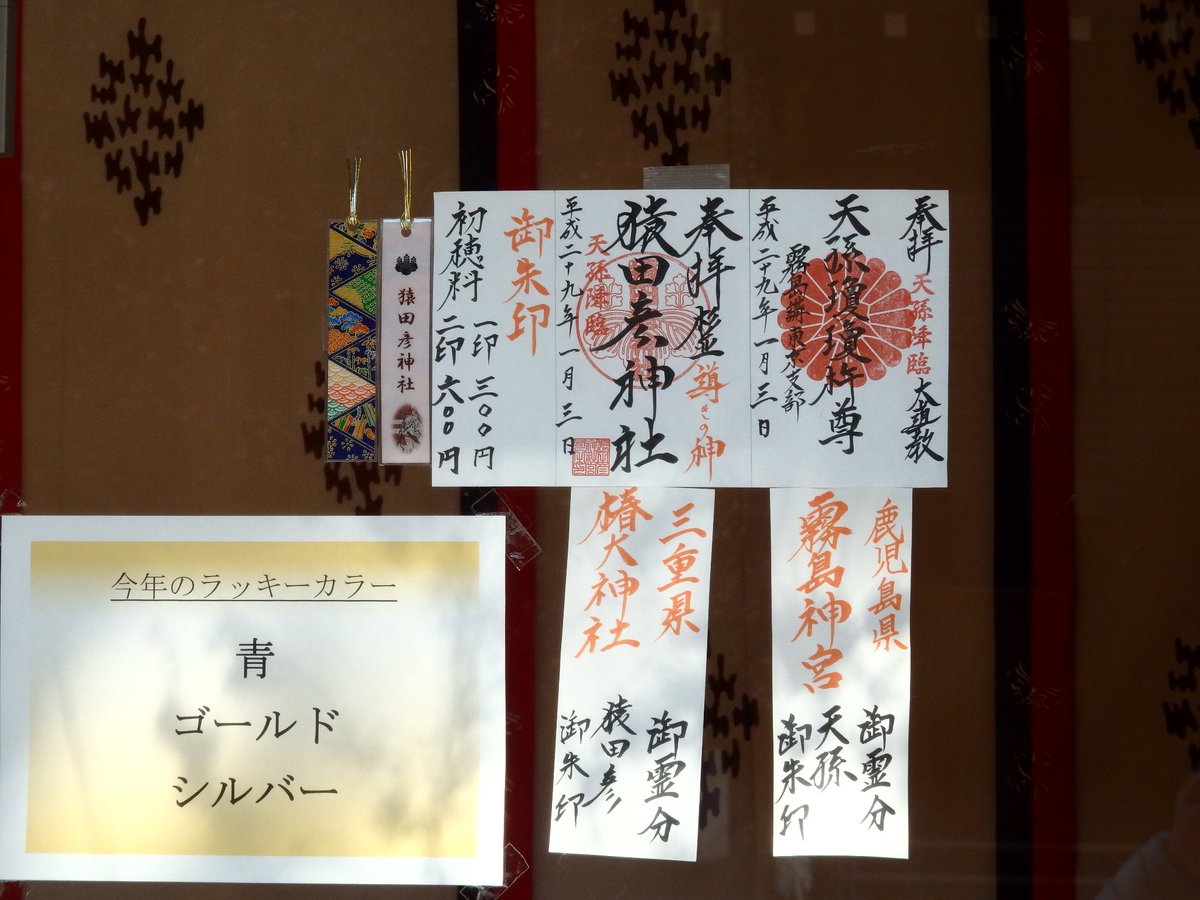 奉拝
天孫降臨
大道教
天孫瓊瓊杵尊
霧島講東京支部
平成二十九年一月三日
奉拝
導きの神
猿田彦神社
天孫降臨
平成二十九年一月三日
御朱印
初穂料
一印 三〇〇円
二印 六〇〇円
猿田彦神社
鹿児島県
霧島神宮
御霊分
天孫
御朱印
三重県
椿大神社
御霊分
猿田彦
御朱印
今年のラッキーカラー
青
ゴールド
シルバー